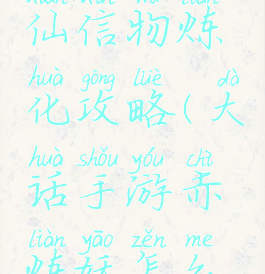 xiān xìn wù liàn
仙信物炼
huà gōng lüè dà
化攻略(大
huà shǒu yóu chì
话手游赤
liàn yāo zěn me
炼妖怎么